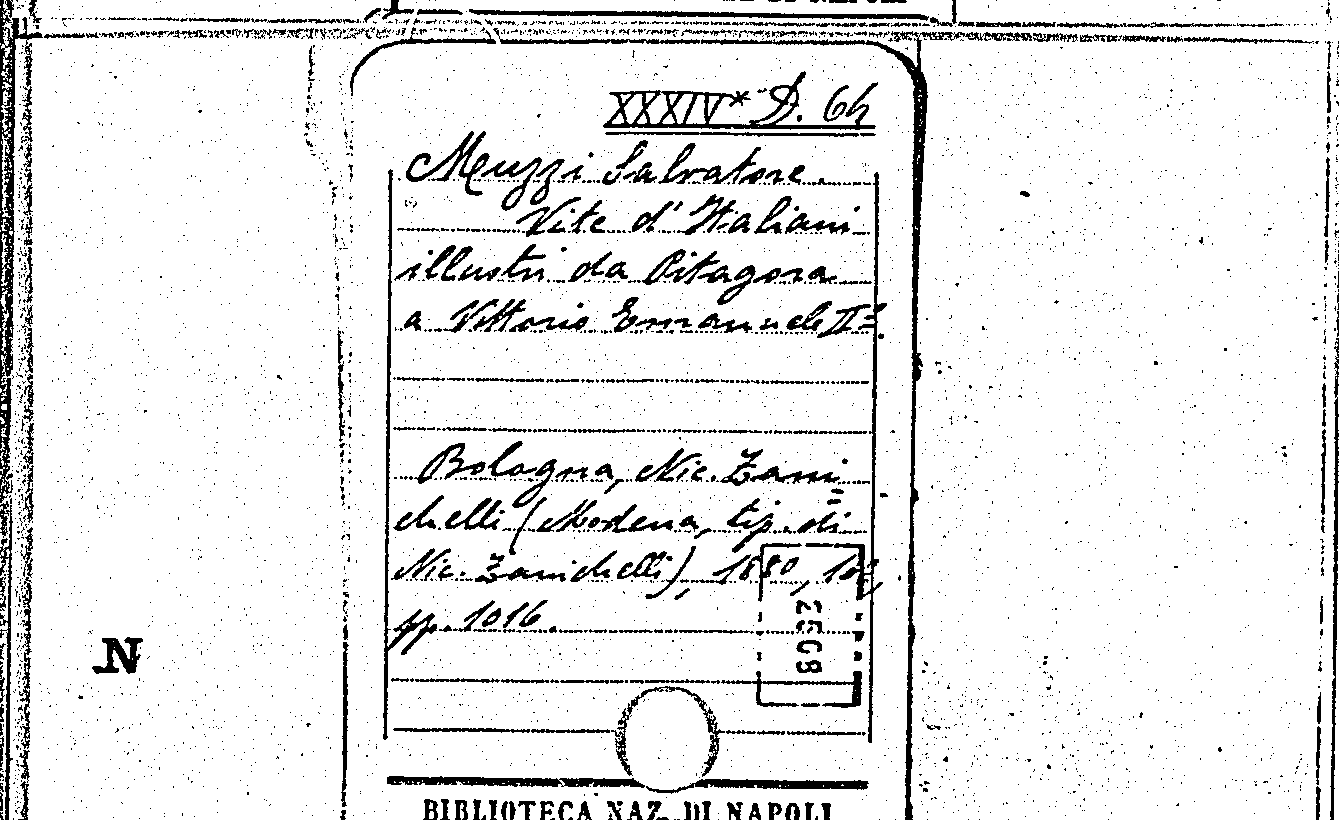 XXXIV* D. 64
Muzzi Salvatore.
Vite d'Italiani
illustri da Pitagora
a Vittorio Emanuele IIº.
Bologna, Nic. Zani=
chelli (Modena, tip. di
Nic. Zanichelli), 1880, 16º,
pp. 1016.
N
BIBLIOTECA NAZ. DI NAPOLI